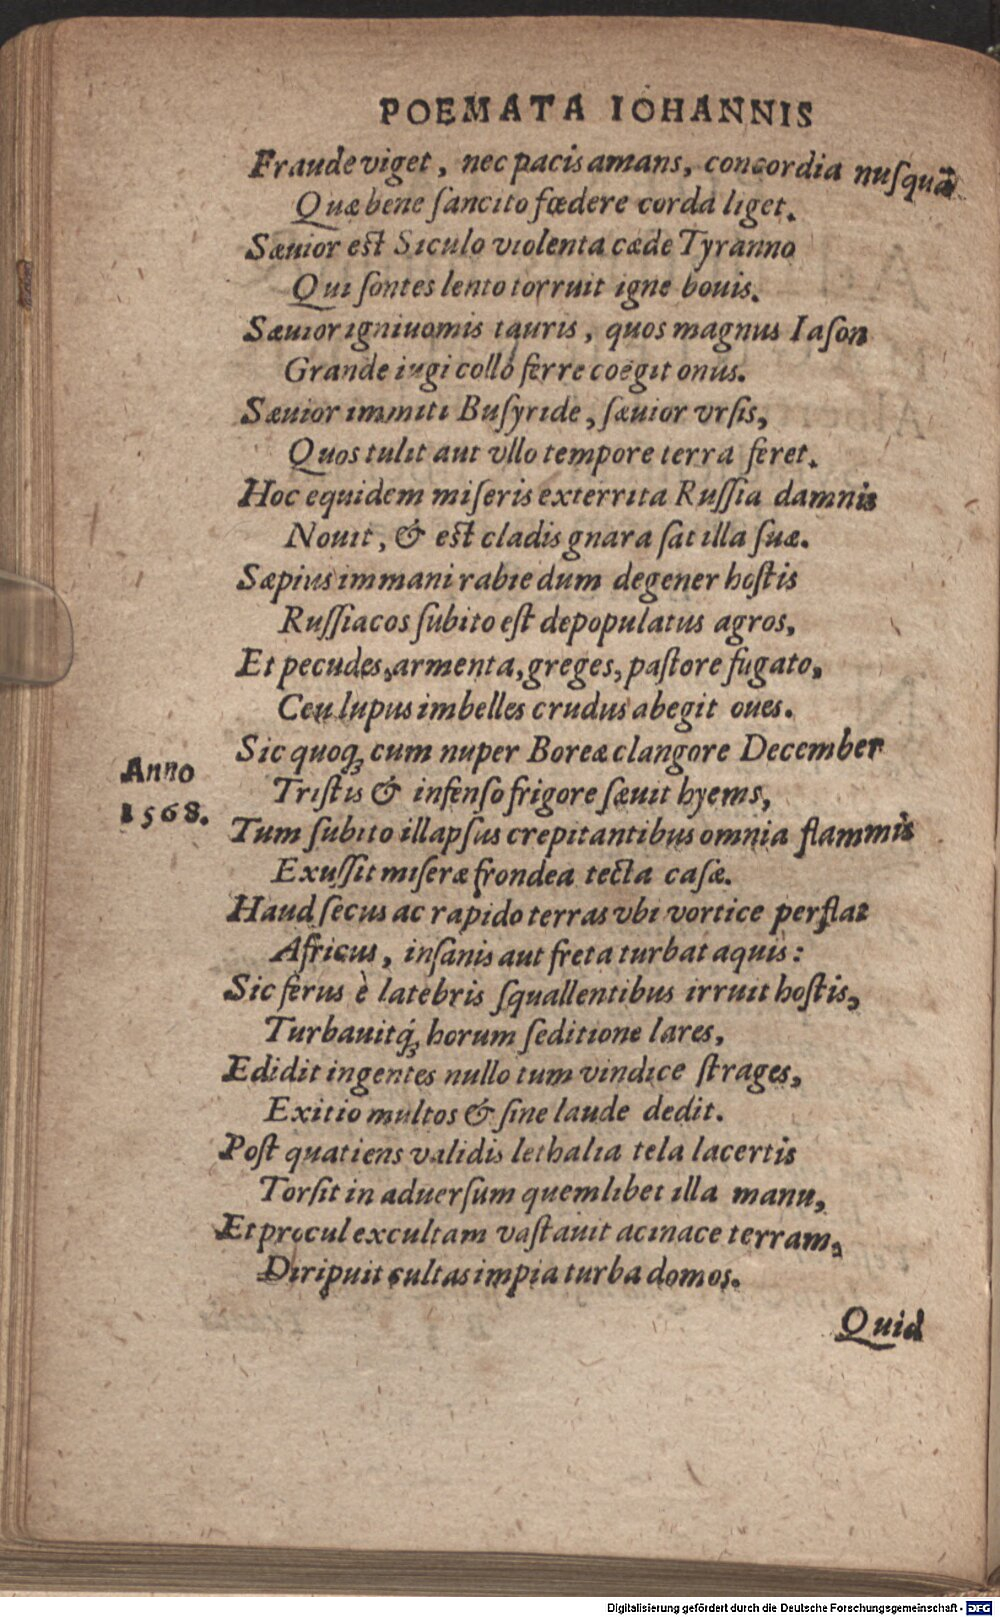 POEMATA IOHANNIS
Fraude viget, nec pacis amans, concordia nuſquã
Quæ bene ſancito fœdere corda liget.
Sæuior eſt Siculo violenta cæde Tyranno
Qui ſontes lento torruit igne bouis.
Sæuior igniuomis tauris, quos magnus Iaſon
Grande iugi collo ferre coëgit onus.
Sæuior immiti Buſyride, ſæuior vrſis,
Quos tulit aut vllo tempore terra feret.
Hoc equidem miſeris exterrita Ruſſia damnis
Nouit, & eſt cladis gnara ſat illa ſuæ.
Sæpius immani rabie dum degener hoſtis
Ruſſiacos ſubito eſt depopulatus agros,
Et pecudes, armenta, greges, paſtore fugato,
Ceu lupus imbelles crudus abegit oues.
Sic quoq; cum nuper Boreæ clangore December
Anno
1568.
Triſtis & infenſo frigore ſæuit hyems,
Tum ſubito illapſus crepitantibus omnia flammis
Exuſſit miſeræ frondea tecta caſæ.
Haud ſecus ac rapido terras vbi vortice perflat
Africus, inſanis aut freta turbat aquis:
Sic ferus è latebris ſquallentibus irruit hoſtis,
Turbauitq́; horum ſeditione lares,
Edidit ingentes nullo tum vindice ſtrages,
Exitio multos & ſine laude dedit.
Poſt quatiens validis lethalia tela lacertis
Torſit in aduerſum quemlibet illa manu,
Et procul excultam vaſtauit acinace terram,
Diripuit cultas impia turba domos.
Quid
Digitalisierung gefördert durch die Deutsche Forschungsgemeinschaft - DFG